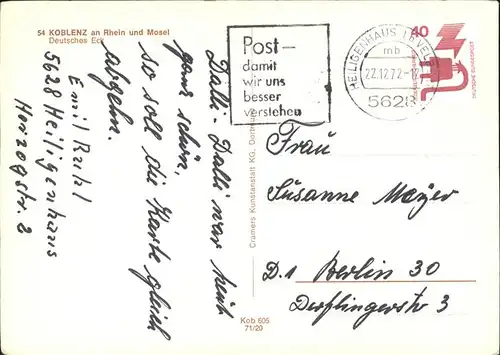 54 KOBLENZ an Rhein und Mosel
Deutsches Eck
Dalli-Dalli war sehr
ganz schön,
so soll die Karte gleich
abgehn.
Emil
5628 Heiligenhaus
Herzogstr. 2
Cramers Kunstanstalt KG, Dortmund
Kob 605
71/20
Post-
damit
wir uns
besser
verstehen
HEILIGENHAUS
mb
22.12.72-17
5628
40
DEUTSCHE BUNDESPOST
Frau
Susanne Meyer
D.1 Berlin 30
Derfflingerstr 3